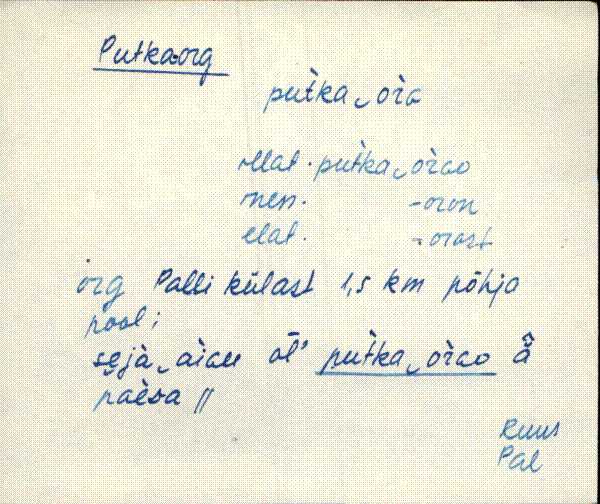 Putka-org
putka‿òrɢ
illat. putka‿òrɢo
inen. -oron
elat. -orost
org Palli külast 1,5 km põhja
pool;
sɛjà‿aiɢu ol̀' putka‿òrɢo â
pàèsa //
Ruus
Pal